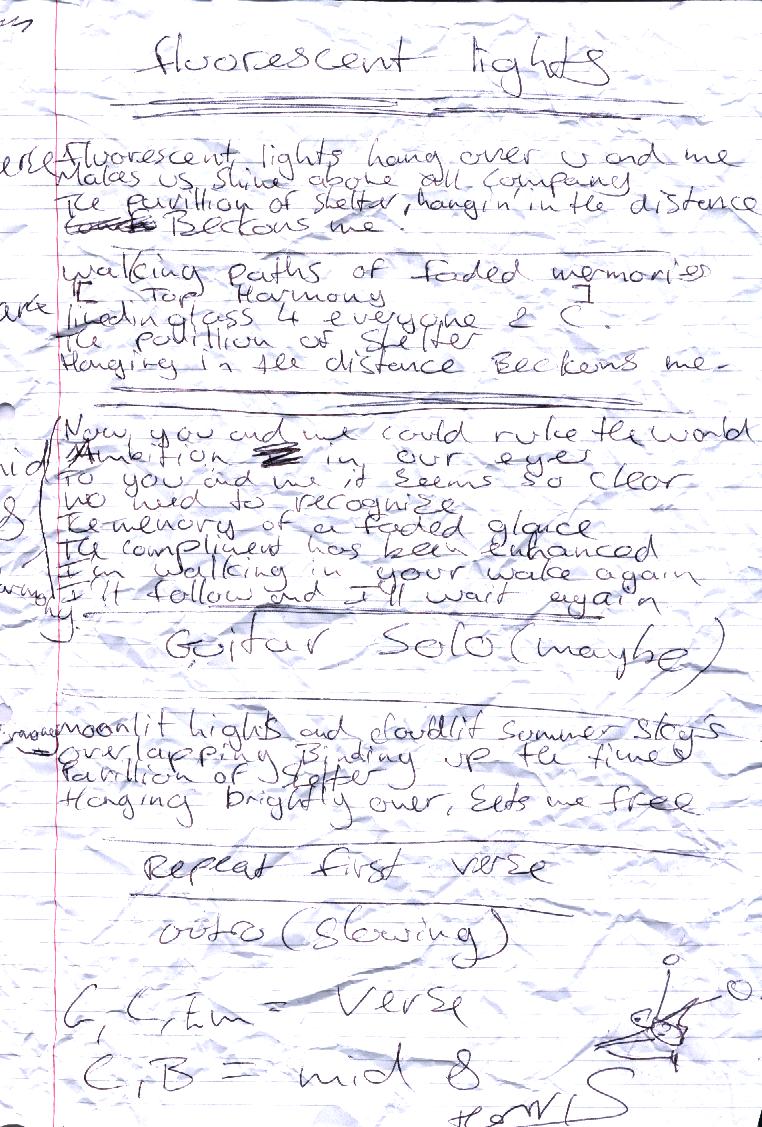 fluorescent lights
fluorescent lights hang over u and me
Makes us shine above all company
The pavillion of shelter, hangin' in the distance
Beckons me.
walking paths of faded memories
[ Top Harmony ]
lined in glass 4 everyone 2 C.
The pavillion of shelter
Hanging in the distance Beckons me-
Now you and me could rule the world
Ambition in our eyes
To you and me it seems so clear
no need to recognize
The memory of a faded glance
The compliment has been enhanced
I'm walking in your wake again
I'll follow and I'll wait again
mid
8
harmony.
Guitar Solo (maybe)
moonlit nights and cloudlit summer sky's
overlapping Binding up the times
Pavillion of shelter
Hanging brightly over, sets me free
Repeat first verse
outro (slowing)
G, C, Em = Verse
C, B = mid 8